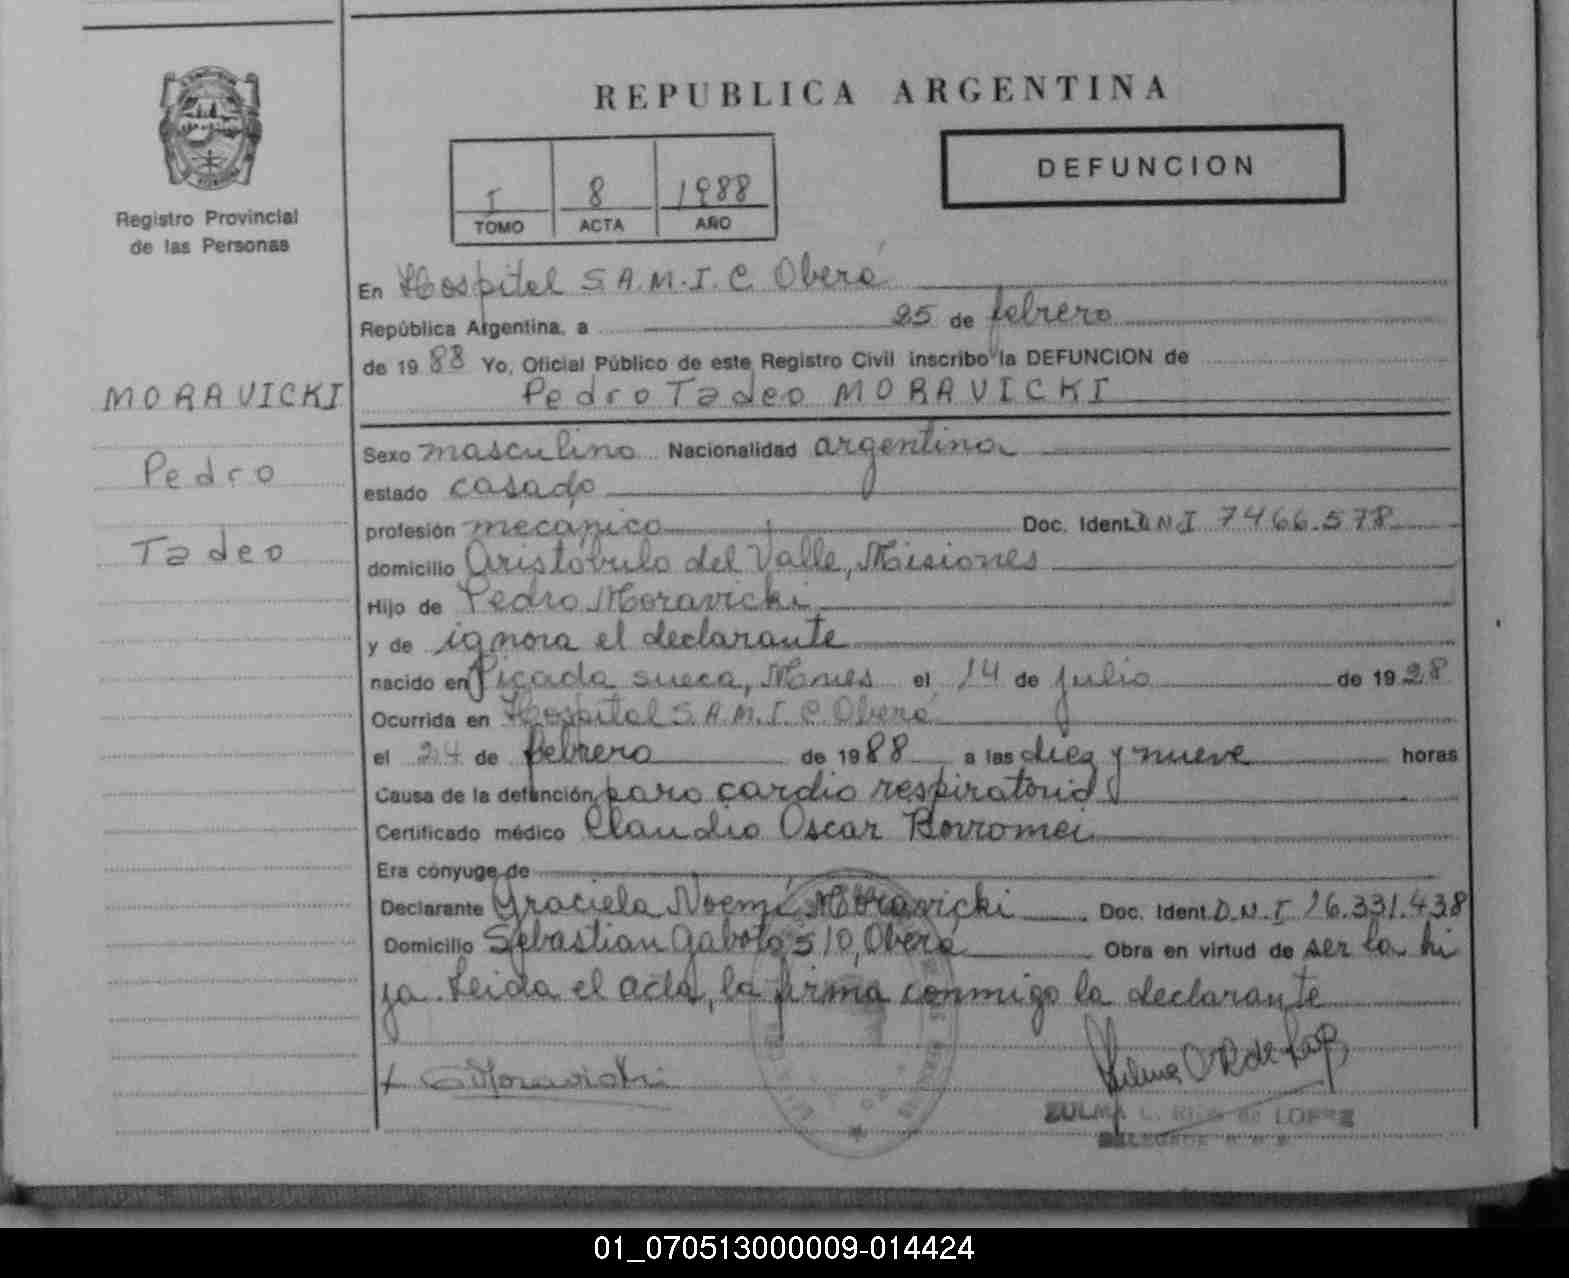 REPUBLICA ARGENTINA
DEFUNCION
Registro Provincial
de las Personas
I 8 1988
TOMO ACTA AÑO
En Hospital S.A.M.I.C Oberá
República Argentina, a 25 de febrero
de 19 88 Yo, Oficial Público de este Registro Civil inscribo la DEFUNCION de
Pedro Tadeo MORAVICKI
MORAVICKI
Pedro
Tadeo
Sexo masculino Nacionalidad argentina
estado casado
profesión mecánico Doc. Ident. DNI 7466.578
domicilio Aristóbulo del Valle, Misiones
Hijo de Pedro Moravicki
y de ignora el declarante
nacido en Picada sueca, Mnes el 14 de julio de 19 28
Ocurrida en Hospital S.A.M.I.C Oberá
el 24 de febrero de 19 88 a las diez y nueve horas
Causa de la defunción paro cardio respiratorio
Certificado médico Claudio Oscar Borromei
Era cónyuge de
Declarante Graciela Noemí Moravicki Doc. Ident. D.N.I 16.331.438
Domicilio Sebastian Gaboto 510, Oberá Obra en virtud de ser la hi
ja. Leida el acta, la firma conmigo la declarante
x GMoravicki
ZULMA de LOPEZ
01_070513000009-014424